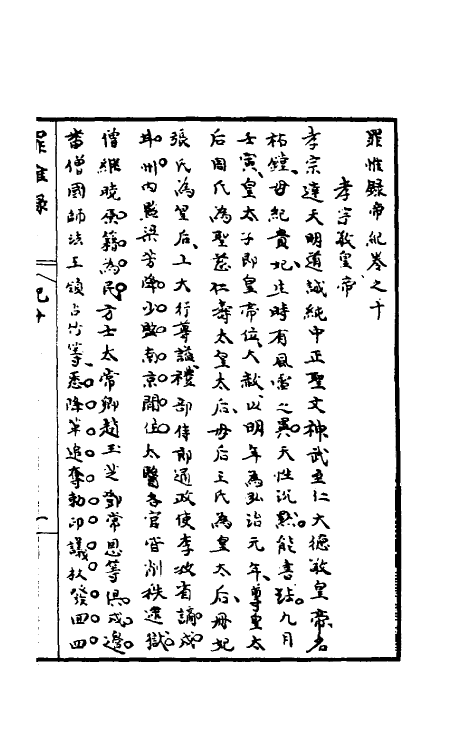 罪惟錄帝紀卷之十
孝宗敬皇帝
孝宗達天明道誠純中正聖文神武至仁大德敬皇帝名
祐鏜母紀貴妃生時有風雷之異天性沉默能書強九月
壬寅皇太子即皇帝位大赦以明年為弘治元年尊皇太
后周氏為聖慈仁壽太皇太后母后王氏為皇太后冊妃
張氏為皇后上大行尊謚禮部侍郎通政使李孜省謫戍
州內監梁芳降少監南京閒住太醫各官皆削秩逮獄
僧繼曉原籍為民方士太常卿趙玉芝鄧常恩等俱戍邊
番僧國師法王領占竹等悉降革追奪勅印議杖發回四
罪惟錄
紀十